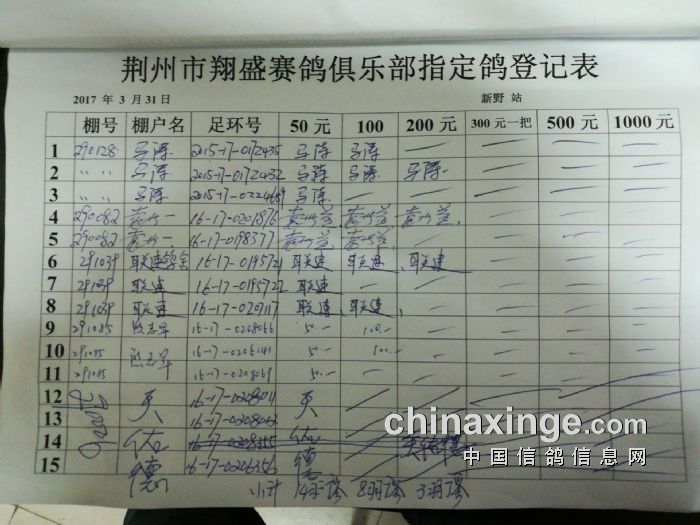 荆州市翔盛赛鸽俱乐部指定鸽登记表
2017 年 3 月 31 日 新野 站
棚号 棚户名 足环号 50 元 100 200 元 300 元一把 500 元 1000 元
1 290128 马涛 2015-17-0172435 马涛 马涛 — — — —
2 〃 〃 马涛 2015-17-0172432 马涛 马涛 马涛 — — —
3 〃 〃 马涛 马涛 — — — — —
4 290082 16-17-0201876
5 290082 16-17-0198377
6 291039 16-17-0195721 联建 联建 联建
7 291039 联建 16-17-0195722 联建 — — — — —
8 291039 联建 16-17-0207117 联建 联建 — — — —
9 291085 熊志军 16-17-0208066 50.— 100.— — — — —
10 291085 熊志军 16-17-0206141 50.— 100.— — — — —
11 291085 16-17-0208069 50.— — — — — —
12 16-17-0208011
13 16-17-0208063
14 佑 16-17-0208355 佑
15 德 16-17-0206356 德
小计 14羽 8羽 3羽
chinaxinge.com
中国信鸽信息网